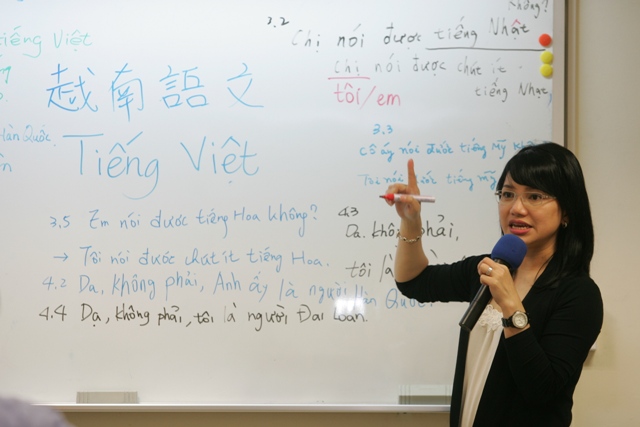 tiếng Việt
3.2
không?
Chị nói được tiếng Nhật
Chị nói được chút ít
tôi/em
tiếng Nhật,
越南語文
Hàn Quốc.
Tiếng Việt
3.3
cô ấy nói được tiếng Mỹ
Tôi nói được tiếng Mỹ
3.5 Em nói được tiếng Hoa không?
→ Tôi nói được chút ít tiếng Hoa.
4.3
Dạ. không phải,
tôi là
4.2 Dạ, không phải, Anh ấy là người Hàn Quốc.
4.4 Dạ, không phải, tôi là người Đài Loan.